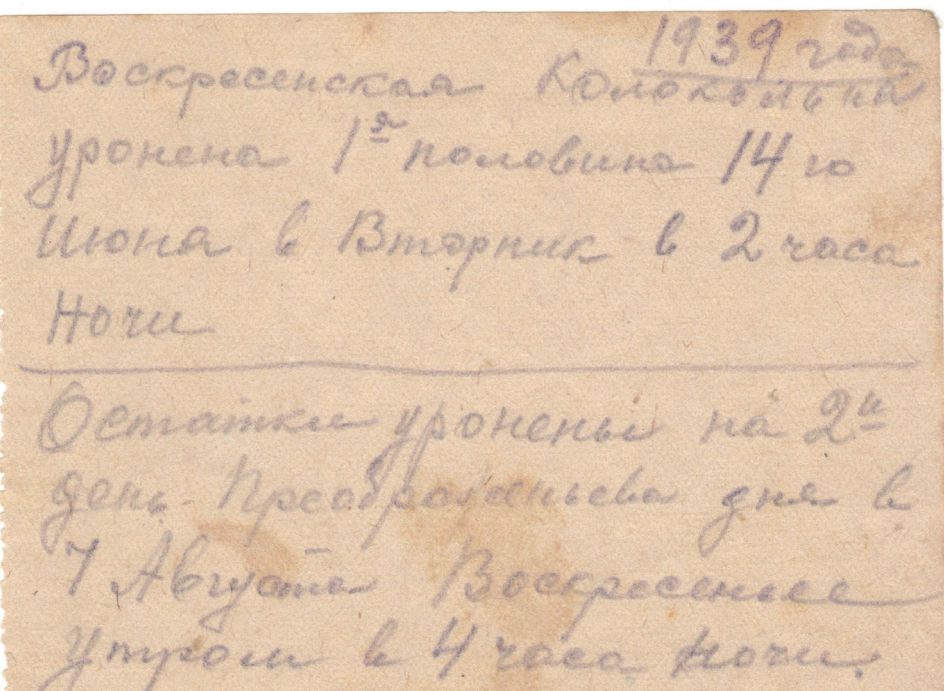 1939 года
Воскресенская Колокольна
уронена 1я половина 14 го
Июна в Вторник в 2 часа
Ночи
Остатки уронены на 2й
день Преображеньева дня в
7 Августа Воскресенье
утром в 4 часа ночи.